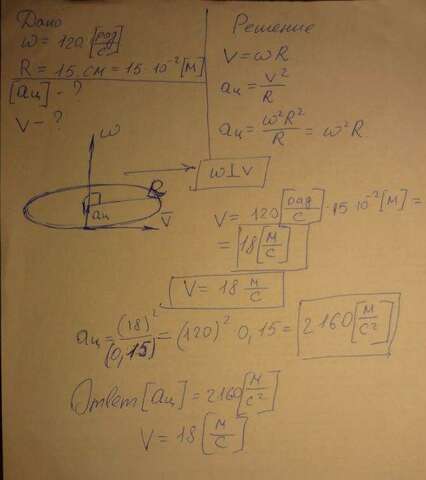 Дано
ω = 120 [рад/с]
R = 15 см = 15 · 10⁻² [м]
[aц] - ?
V - ?
Решение
V = ωR
aц = V²/R
aц = ω²R²/R = ω²R
ω
R
aц
V̄
ω⊥V
V = 120 [рад/с] · 15 · 10⁻² [м] =
= 18 [м/с]
V = 18 м/с
aц = (18)²/(0,15) = (120)² 0,15 = 2160 [м/с²]
Ответ [aц] = 2160 [м/с²]
V = 18 [м/с]